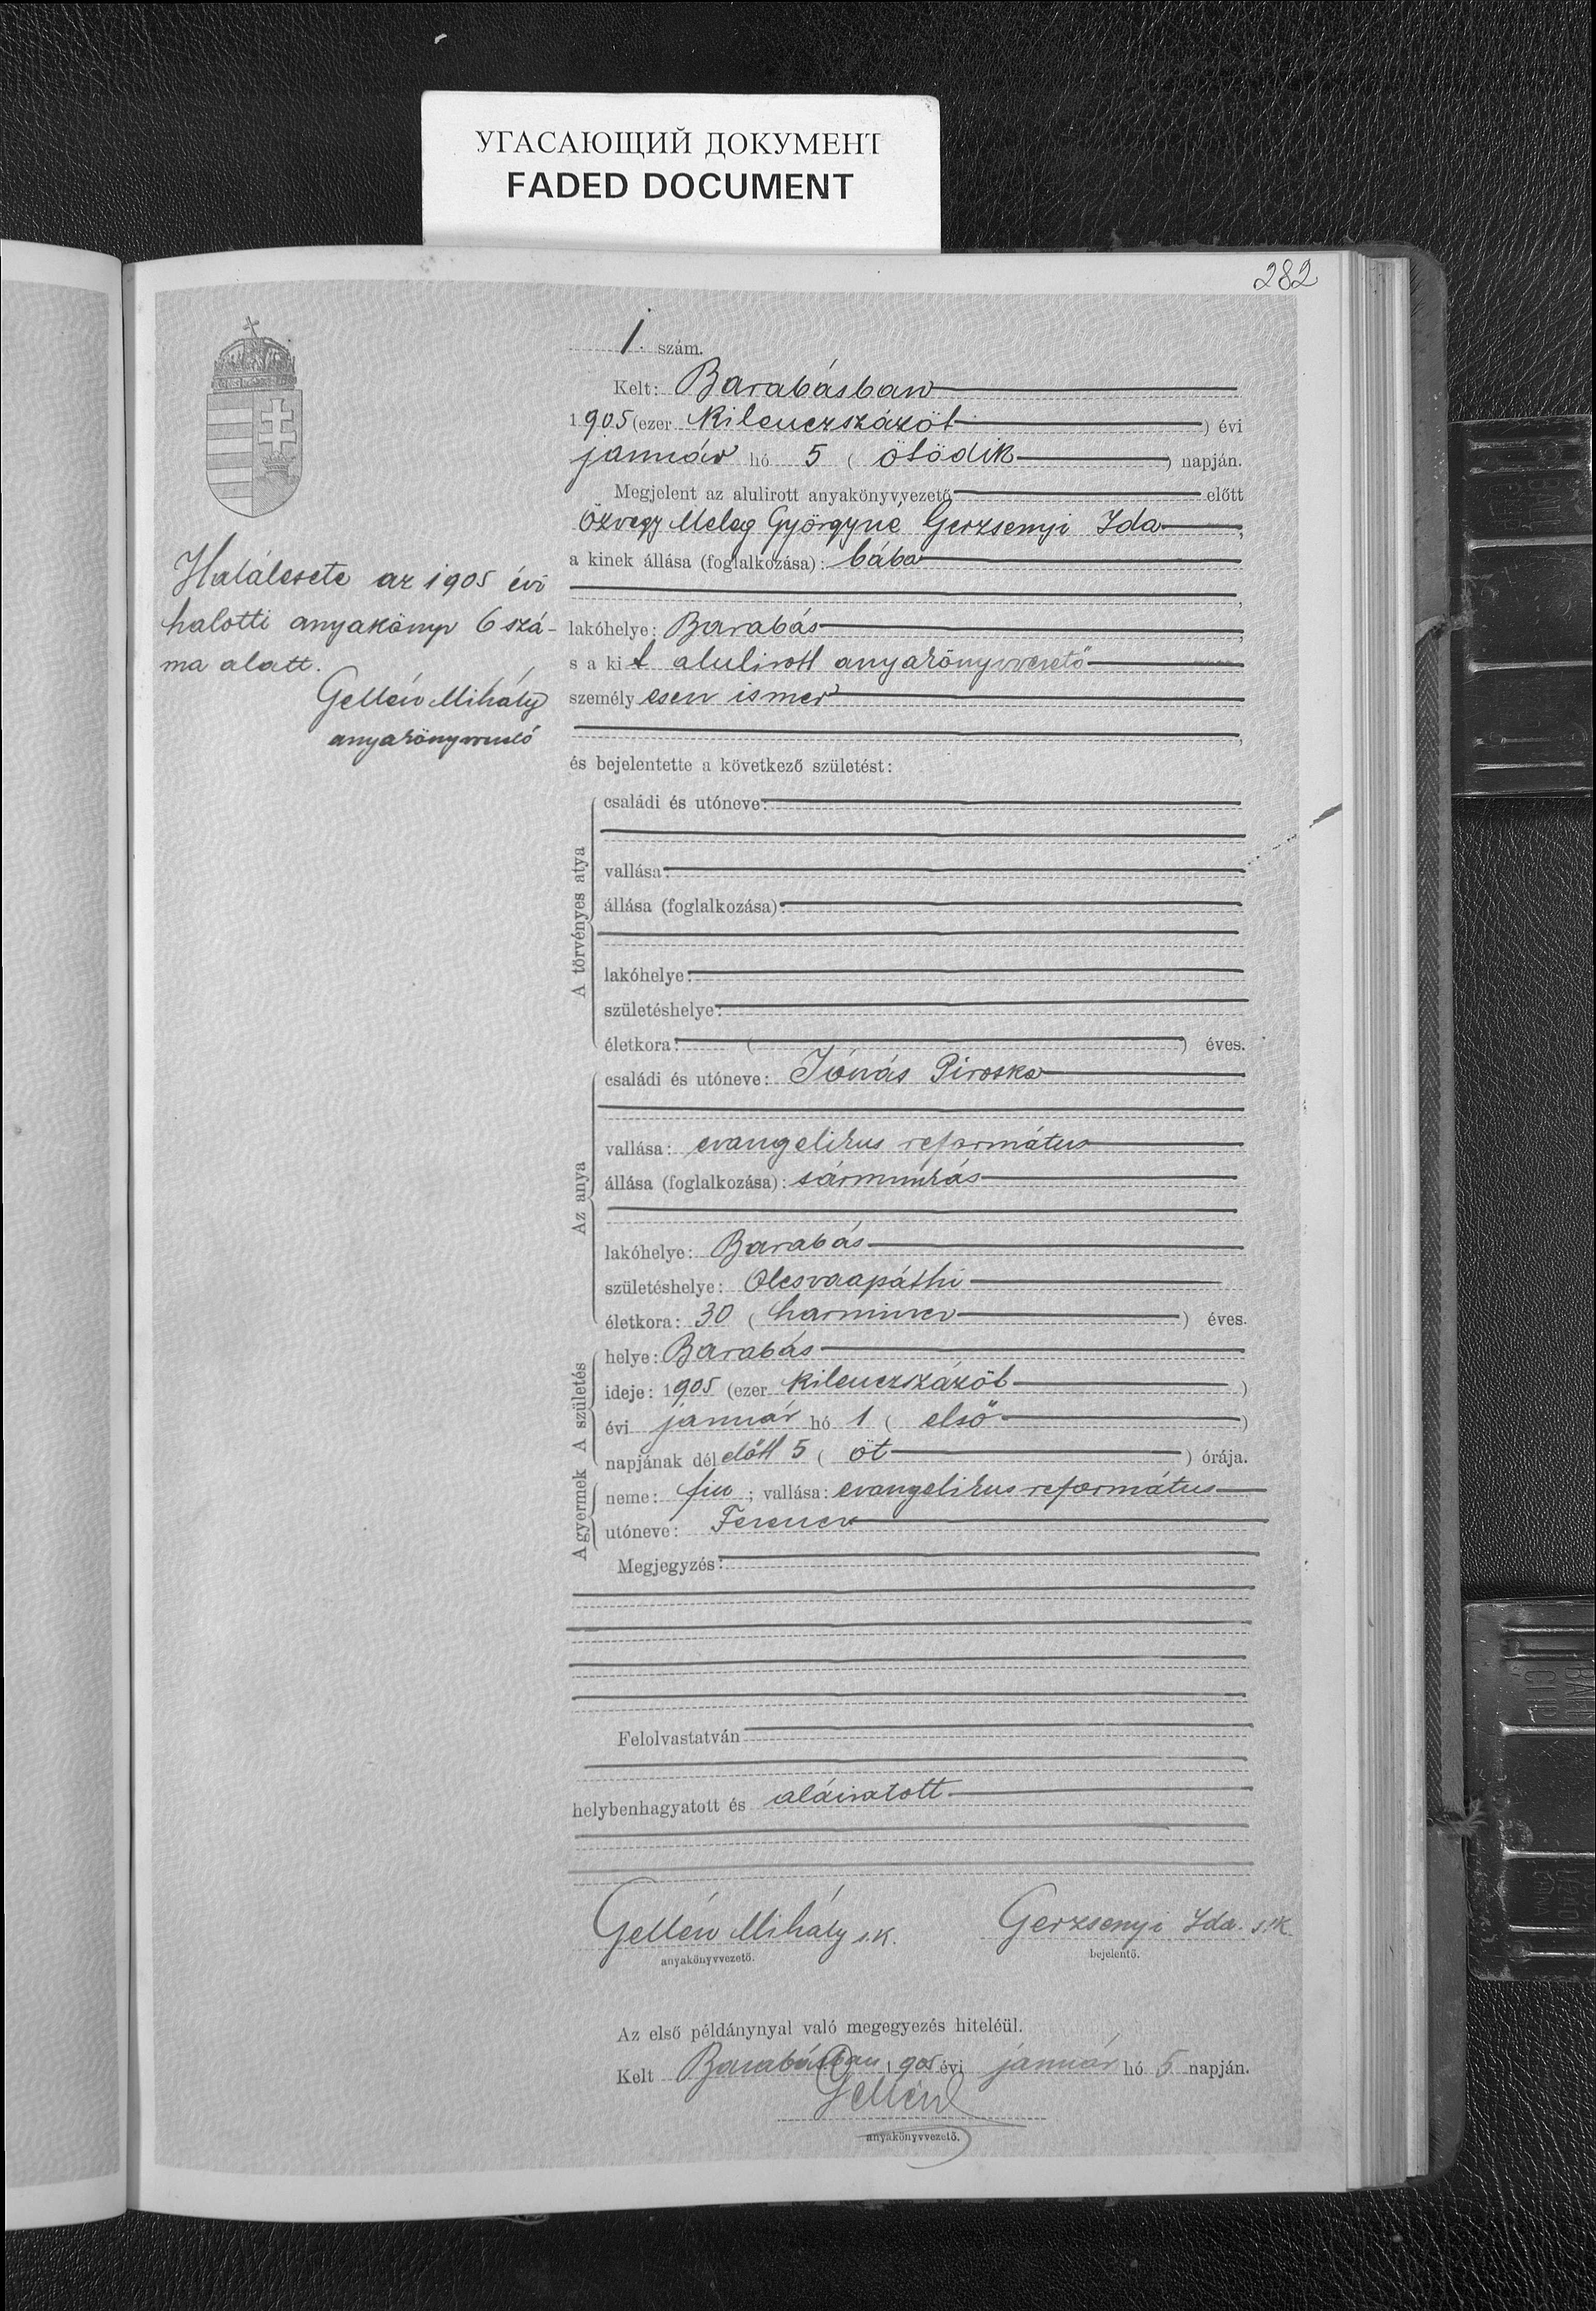 УГАСАЮЩИЙ ДОКУМЕНТ
FADED DOCUMENT
282
1. szám.
Kelt: Barabásban
1905 (ezer kilenczszázöt) évi
január hó 5 (ötödik) napján.
Megjelent az alulirott anyakönyvvezető előtt
özvegy Meleg Györgyné Gerzsenyi Ida,
a kinek állása (foglalkozása): bába
,
lakóhelye: Barabás,
s a kit alulirott anyakönyvvezető
személyesen ismer
,
és bejelentette a következő születést:
Halálesete az 1905 évi
halotti anyakönyv 6 szá-
ma alatt.
Gellén Mihály
anyakönyvvezető
A törvényes atya
családi és utóneve:
vallása:
állása (foglalkozása):
lakóhelye:
születéshelye:
életkora: ( ) éves.
Az anya
családi és utóneve: Jónás Piroska
vallása: evangelikus református
állása (foglalkozása): sármunkás
lakóhelye: Barabás
születéshelye: Olcsvaapáthi
életkora: 30 (harmincz) éves.
A születés
helye: Barabás
ideje: 1905 (ezer kilenczszázöt)
évi január hó 1 (első)
napjának délelőtt 5 (öt) órája.
A gyermek
neme: fiu; vallása: evangelikus református
utóneve: Ferencz
Megjegyzés:
Felolvastatván
helybenhagyatott és aláiratott
Gellén Mihály s.k.
anyakönyvvezető.
Gerzsenyi Ida. s.k.
bejelentő.
Az első példánynyal való megegyezés hiteléül.
Kelt Barabásban 1905 évi január hó 5 napján.
Gellén
anyakönyvvezető.